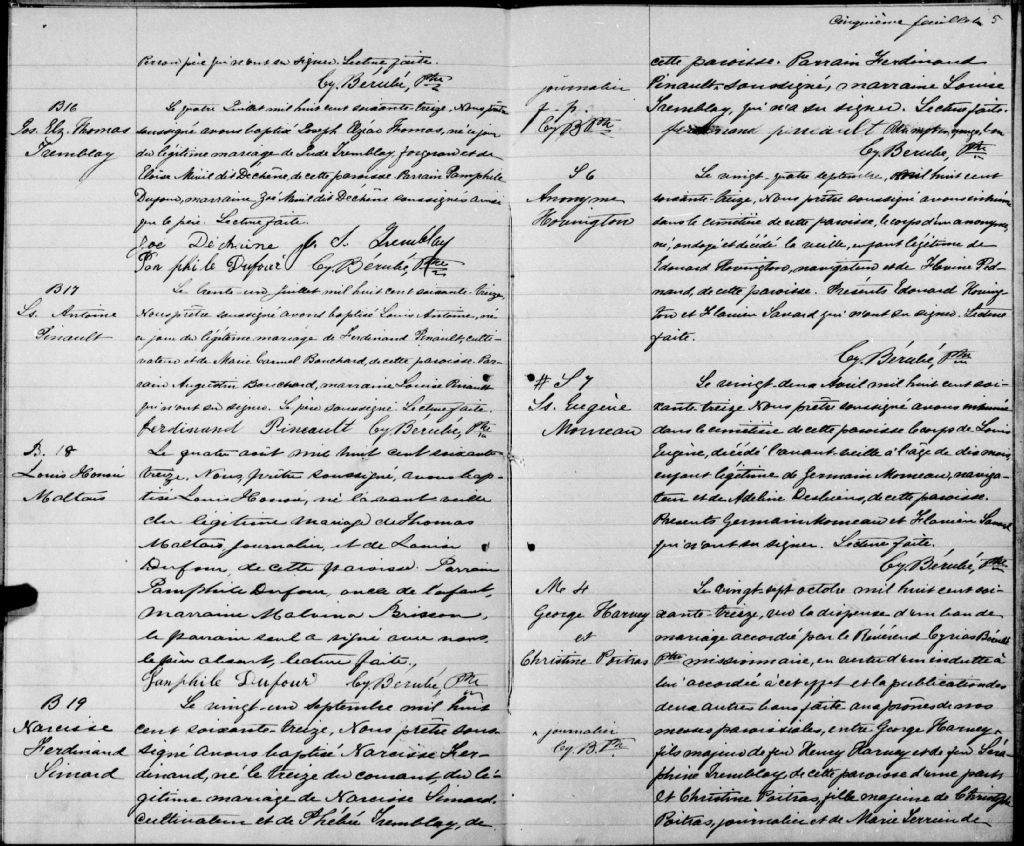 Person père qui n'ont su signer. Lecture faite.
Cy. Bérubé, Ptre
B16
Jos. Elz. Thomas
Tremblay
Le quatre Juillet mil huit cent soixante-treize, Nous prêtre
soussigné avons baptisé Joseph Elzéar Thomas, né ce jour
du légitime mariage de Jude Tremblay forgeron et de
Eloïse Miville dit Dechêne, de cette paroisse. Parrain Pamphile
Dufour, marraine Zoé Miville dit Dechêne soussignés ainsi
que le père. Lecture faite.
Zoé Dechaine J. S. Tremblay
Panphile Dufour Cy. Bérubé, Ptre
B17
Ls. Antoine
Pinault
Le trente-un Juillet mil huit cent soixante-treize,
Nous prêtre soussigné avons baptisé Louis Antoine, né
ce jour du légitime mariage de Ferdinand Pinault, culti-
vateur et de Marie Carmel Bouchard, de cette paroisse. Par-
rain Augustin Bouchard, marraine Louise Pinault
qui n'ont su signer. Le père soussigné. Lecture faite.
Ferdinand Pineault Cy. Bérubé, Ptre
B. 18
Louis Honoré
Maltais
Le quatre août mil huit cent soixante
treize, Nous, prêtre soussigné, avons bap-
tisé Louis Honoré, né l'avant veille
du légitime mariage de Thomas
Maltais journalier, et de Louise
Dufour, de cette paroisse. Parrain
Pamphile Dufour, oncle de l'enfant,
marraine Malvina Brisson,
le parrain seul a signé avec nous,
le père absent, lecture faite.
Panphile Dufour Cy. Bérubé, Ptre
B19
Narcisse
Ferdinand
Simard
Le vingt-un septembre mil huit
cent soixante-treize, Nous prêtre sous-
signé avons baptisé Narcisse Fer-
dinand, né le treize du courant, du lé-
gitime mariage de Narcisse Simard,
cultivateur et de Phébée Tremblay, de
Cinquième feuillet 5
cette paroisse. Parrain Ferdinand
Pinault soussigné, marraine Louise
Tremblay, qui n'a su signer. Lecture faite.
ferdinand pineault
Cy. Bérubé, Ptre
journalier
J. P.
Cy B Ptre
S6
Anonyme
Hovington
Le vingt-quatre septembre, mil huit cent
soixante-treize, Nous prêtre soussigné avons inhumé
dans le cimetière de cette paroisse, le corps d'un anonyme,
né, ondoyé et décédé la veille, enfant légitime de
Edouard Hovington, navigateur et de
de cette paroisse. Présents Edouard Hoving-
ton et Flavien Savard qui n'ont su signer. Lecture
faite.
Cy. Bérubé, Ptre
# S7
Ls. Eugène
Morneau
Le vingt-deux Avril mil huit cent soi-
xante-treize Nous prêtre soussigné avons inhumé
dans le cimetière de cette paroisse le corps de Louis
Eugène, décédé l'avant-veille à l'âge de dix mois,
enfant légitime de Germain Morneau, naviga-
teur et de Adeline Desbiens, de cette paroisse.
Présents Germain Morneau et Flavien Savard
qui n'ont su signer. Lecture faite.
Cy. Bérubé, Ptre
M4
George Harvey
et
Christine Poitras
Le vingt-sept octobre mil huit cent soi-
xante-treize, vu la dispense d'un ban de
mariage accordée par le Révérend Cyrias Bérubé
Ptre missionnaire, en vertu d'un indult à
lui accordé à cet effet et la publication des
deux autres bans faite aux prônes de nos
messes paroissiales, entre George Harvey
fils majeur de feu Henry Harvey et de feu Séra-
phine Tremblay, de cette paroisse d'une part;
Et Christine Poitras, fille majeure de Christophe
Poitras, journalier et de Marie Perrin de
x journalier
Cy. B. Ptre